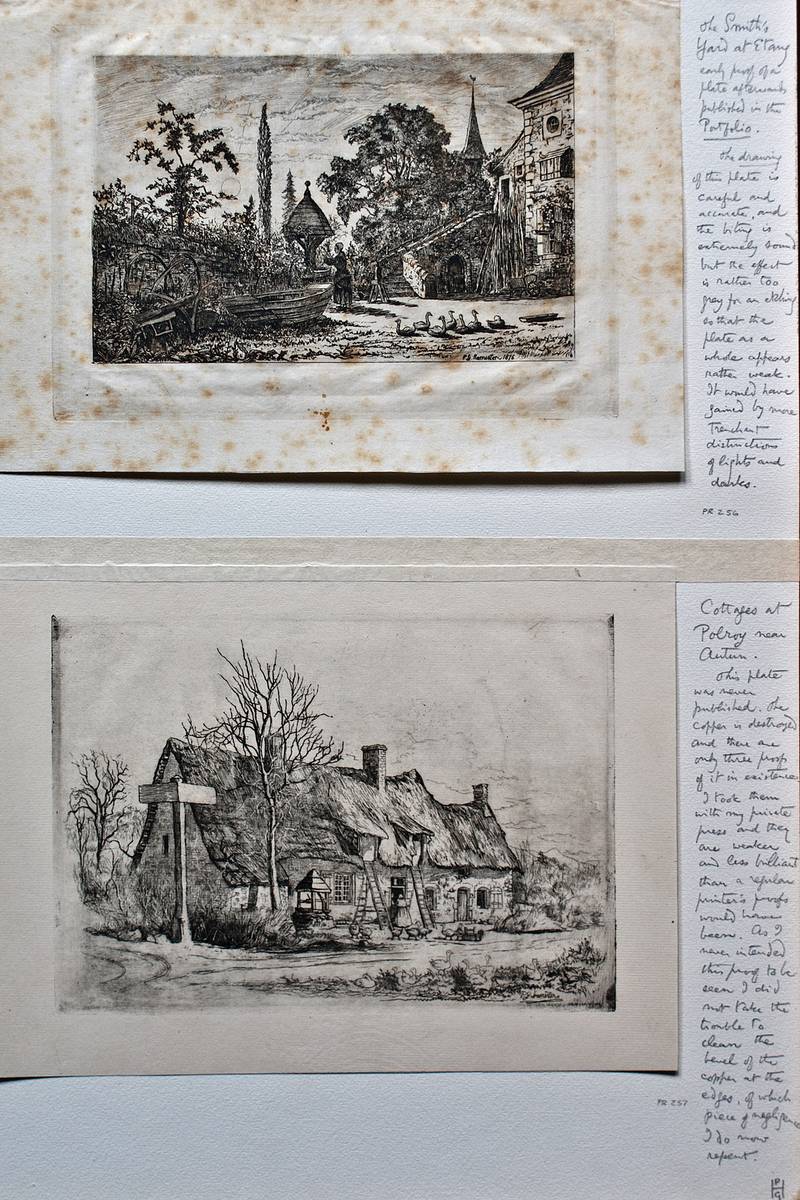 The Smith's
Yard at Etang
early proof of a
plate afterwards
published in the
Portfolio.
The drawing
of this plate is
careful and
accurate, and
the biting is
extremely sound
but the effect
is rather too
gray for an etching
so that the
plate as a
whole appears
rather weak.
It would have
gained by more
trenchant
distinctions
of lights and
darks.
PR 256
1876
Cottages at
Polroy near
Autun.
This plate
was never
published. The
copper is destroyed
and there are
only three proofs
of it in existence
I took them
with my private
press and they
are weaker
and less brilliant
than a regular
printer's proofs
would have
been. As I
never intended
this proof to be
seen I did
not take the
trouble to
clean the
bevel of the
copper at the
edges, of which
piece of negligence
I do now
repent.
PR 257
PHG